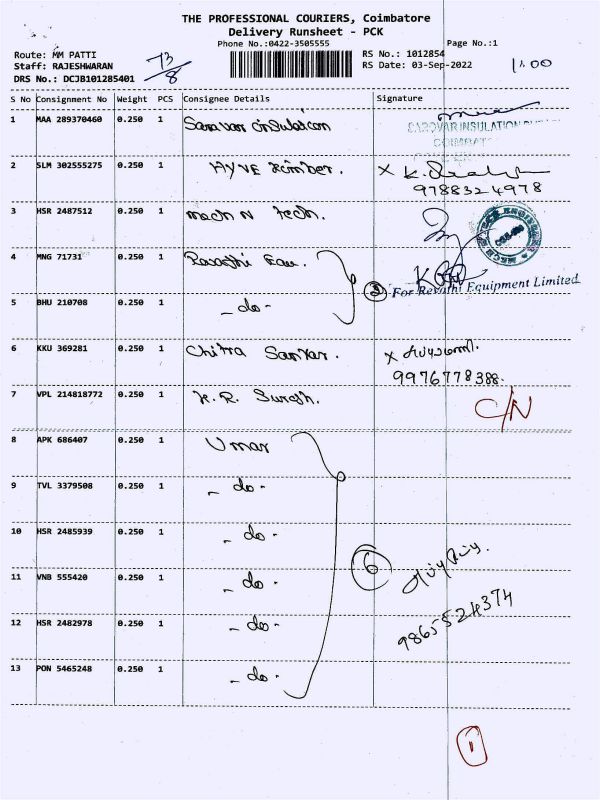 THE PROFESSIONAL COURIERS, Coimbatore
Delivery Runsheet - PCK
Phone No.:0422-3505555
Page No.:1
Route: MM PATTI
RS No.: 1012854
Staff: RAJESHWARAN
RS Date: 03-Sep-2022
DRS No.: DCJB101285401
73/8
11.00
S No Consignment No Weight PCS Consignee Details Signature
1 MAA 289370460 0.250 1
SAROVAR INSULATION
COIMBAT
2 SLM 302555275 0.250 1 HYVE
9788324978
3 HSR 2487512 0.250 1 mech N Tech.
4 MNG 71731 0.250 1
2 For Revathi Equipment Limited
5 BHU 210708 0.250 1 - do -
6 KKU 369281 0.250 1 Chitra Sankar.
9976778388.
7 VPL 214818772 0.250 1 K. R. Suresh. C/N
8 APK 686407 0.250 1 Umar
9 TVL 3379508 0.250 1 - do -
10 HSR 2485939 0.250 1 - do -
6
11 VNB 555420 0.250 1 - do -
9865524374
12 HSR 2482978 0.250 1 - do -
13 PON 5465248 0.250 1 - do -
1